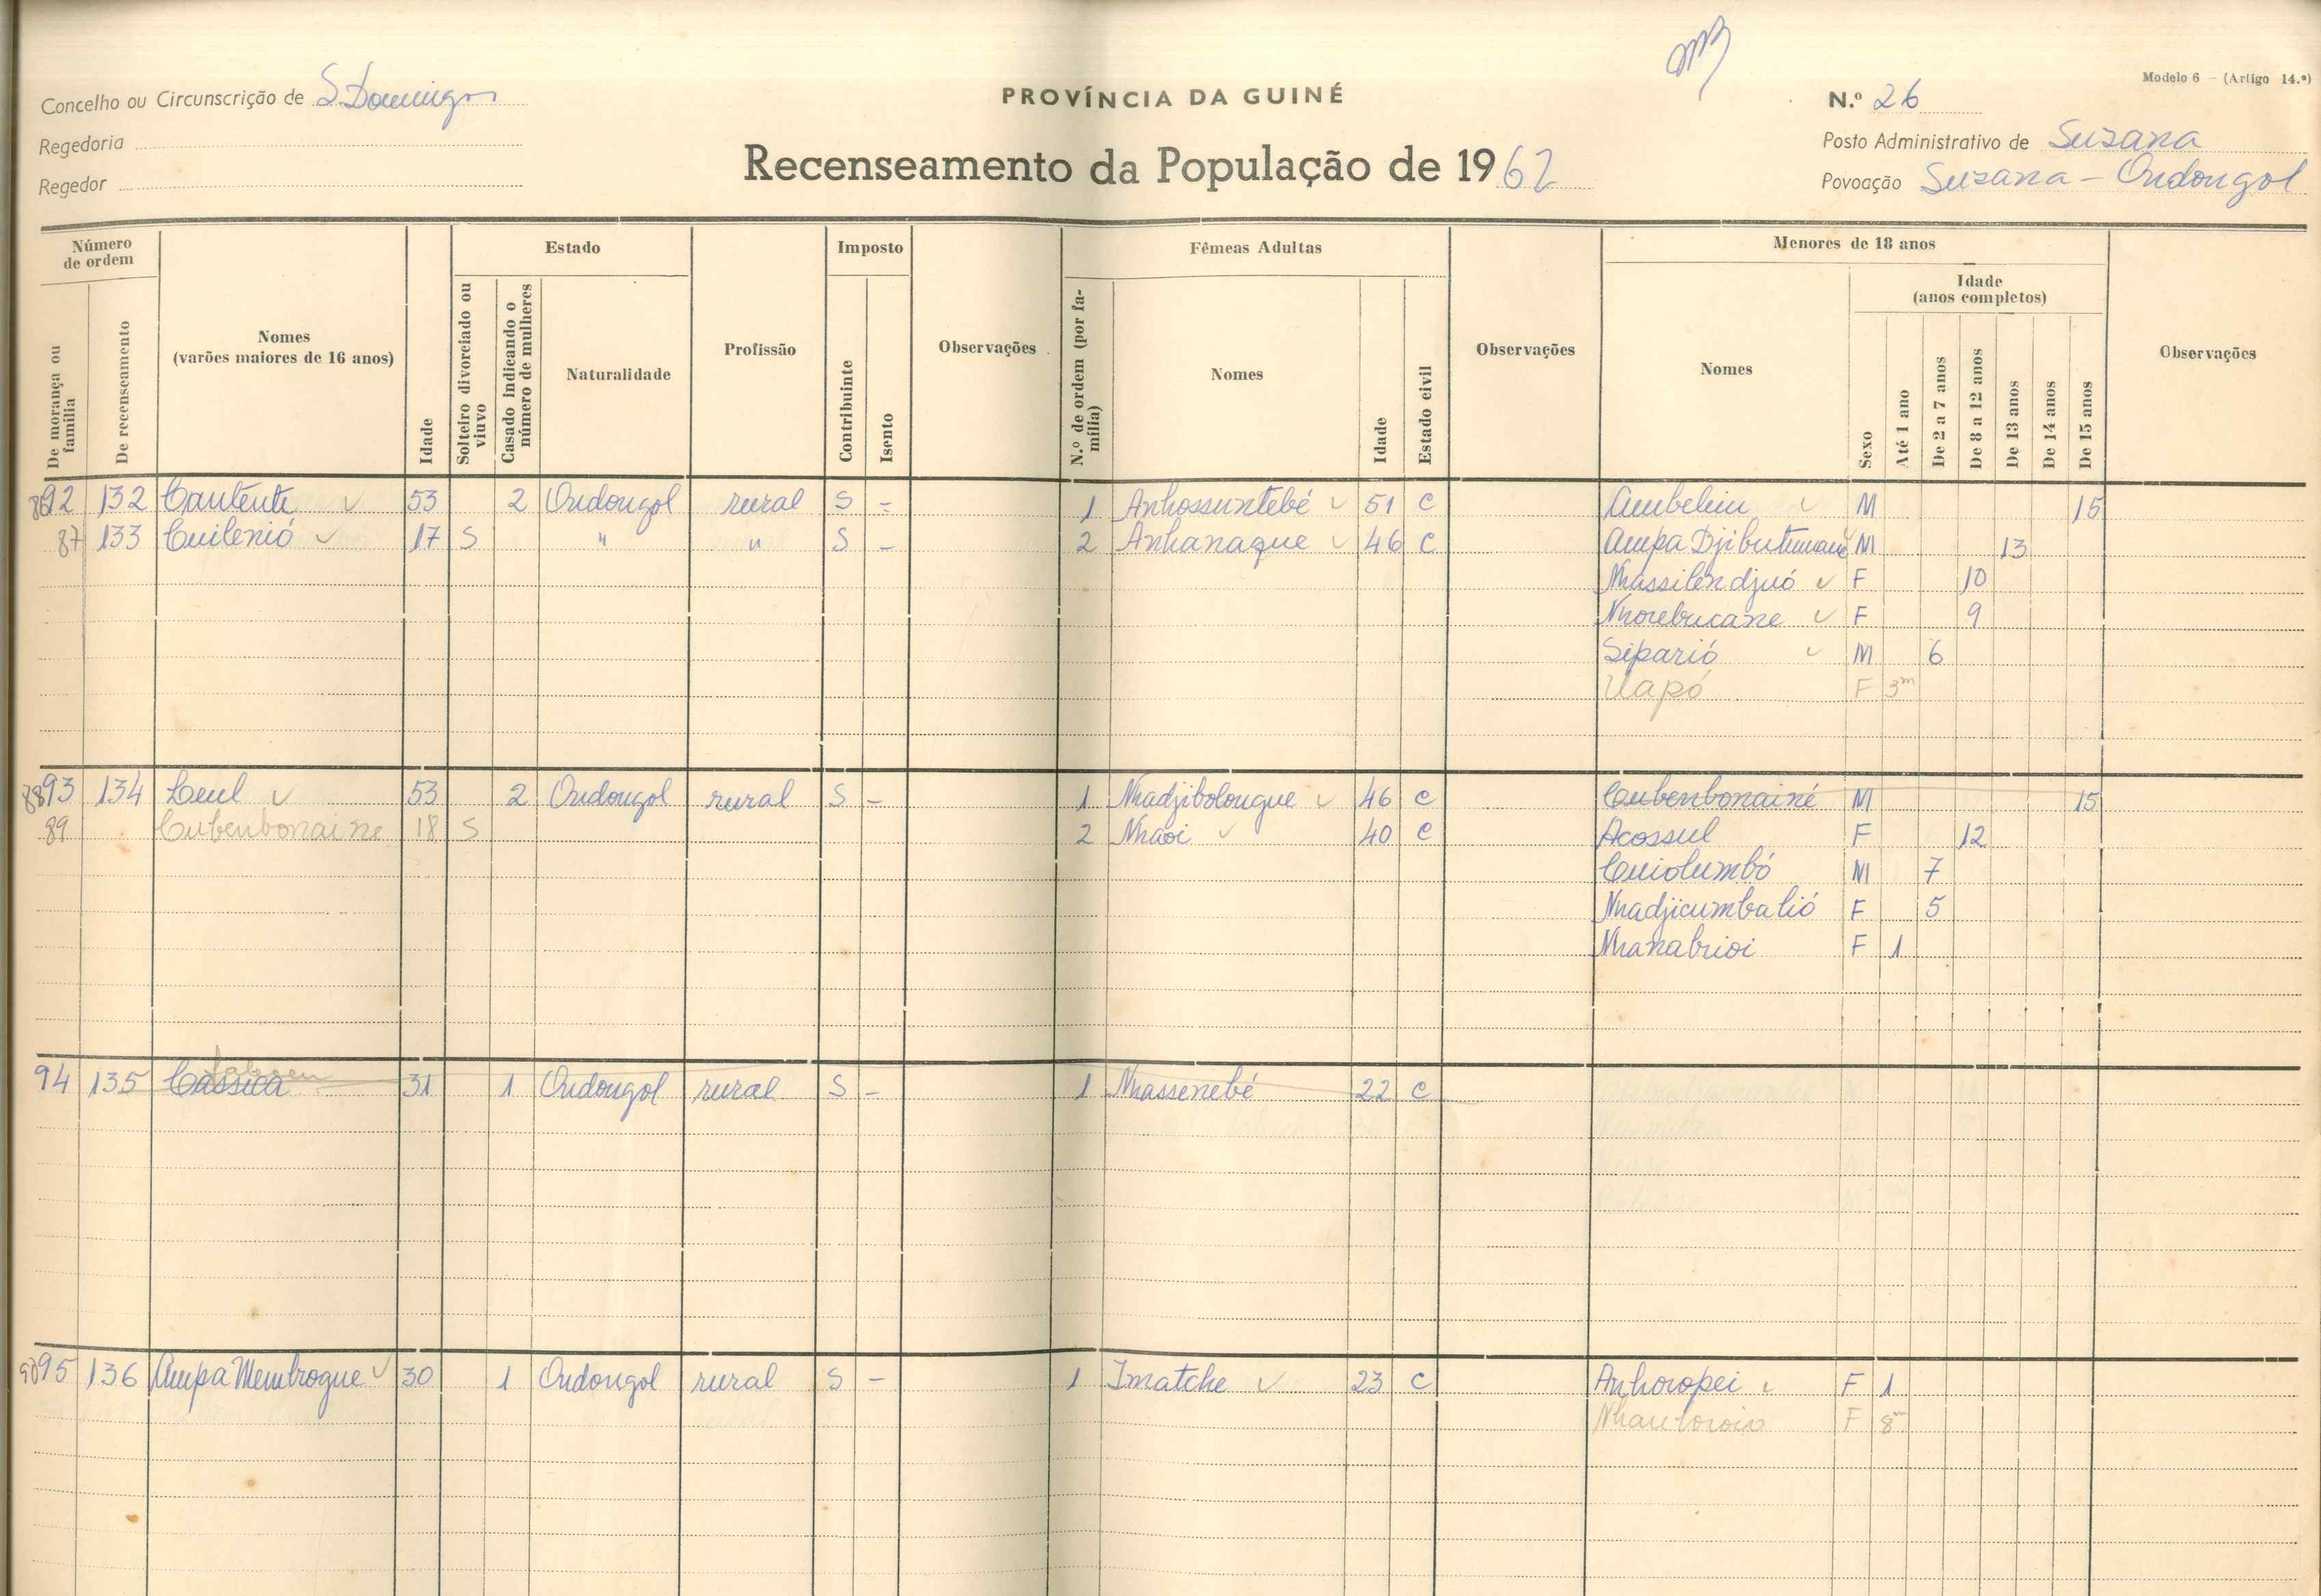 Modelo 6 - (Artigo 14.º)
Concelho ou Circunscrição de S. Domingos
PROVÍNCIA DA GUINÉ
N.º 26
Regedoria
Posto Administrativo de Suzana
Recenseamento da População de 1962
Regedor
Povoação Suzana - Ondongol
Número de ordem
Estado
Imposto
Fêmeas Adultas
Menores de 18 anos
Idade (anos completos)
De morança ou família
De recenseamento
Nomes (varões maiores de 16 anos)
Idade
Solteiro divorciado ou viuvo
Casado indicando o número de mulheres
Naturalidade
Profissão
Contribuinte
Isento
Observações
N.º de ordem (por família)
Nomes
Idade
Estado civil
Observações
Nomes
Sexo
Até 1 ano
De 2 a 7 anos
De 8 a 12 anos
De 13 anos
De 14 anos
De 15 anos
Observações
86 92 132 Cantente 53 2 Ondongol rural S - 1 Anhossuntebé 51 C M 15
87 133 Cuilenió 17 S " " S - 2 Anhanaque 46 C Ampa M 13
Nhassilendjuó F 10
Nhorebucane F 9
Siparió M 6
Uapó F 3m
88 93 134 53 2 Ondongol rural S - 1 Nhadjibolongue 46 C Cubenbonainé M 15
89 Cubenbonaine 18 S 2 Nhaoi 40 C Acossul F 12
Cuiolumbó M 7
Nhadjicumbalió F 5
Nhanabrioi F 1
94 135 Cassica 31 1 Ondongol rural S - 1 Nhassenebé 22 C
90 95 136 Ampa Membrogue 30 1 Ondongol rural S - 1 Imatche 23 C Anhoropei F 1
F 8m